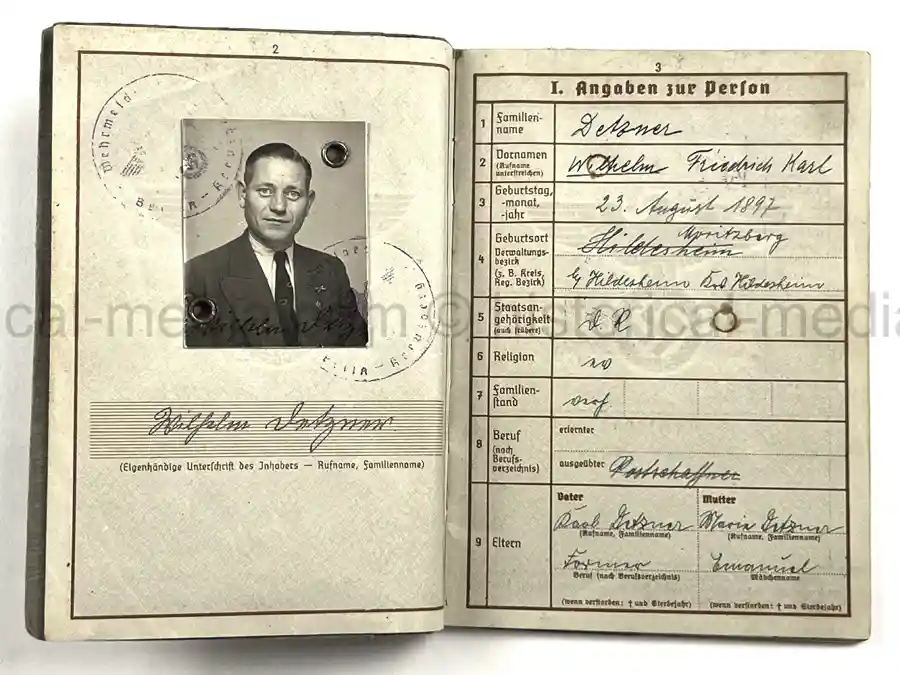 2
Wehrmeld
Wilhelm Detzner
(Eigenhändige Unterschrift des Inhabers — Rufname, Familienname)
3
I. Angaben zur Person
1 Familien-
name
Detzner
2 Vornamen
(Rufname
unterstreichen)
Wilhelm Friedrich Karl
3 Geburtstag,
-monat,
-jahr
23. August 1897
4 Geburtsort
Verwaltungs-
bezirk
(z. B. Kreis,
Reg. Bezirk)
Moritzberg
Hildesheim
Hildesheim Hildesheim
5 Staatsan-
gehörigkeit
(auch frühere)
D R
6 Religion
ev
7 Familien-
stand
verh.
8 Beruf
(nach
Berufs-
verzeichnis)
erlernter
ausgeübter
Postschaffner
9 Eltern
Vater Mutter
Karl Detzner Maria Detzner
(Rufname, Familienname) (Rufname, Familienname)
Former Emanuel
Beruf (nach Berufsverzeichnis) Mädchenname
(wenn verstorben: † und Sterbejahr) (wenn verstorben: † und Sterbejahr)
cal-med m © historical-media